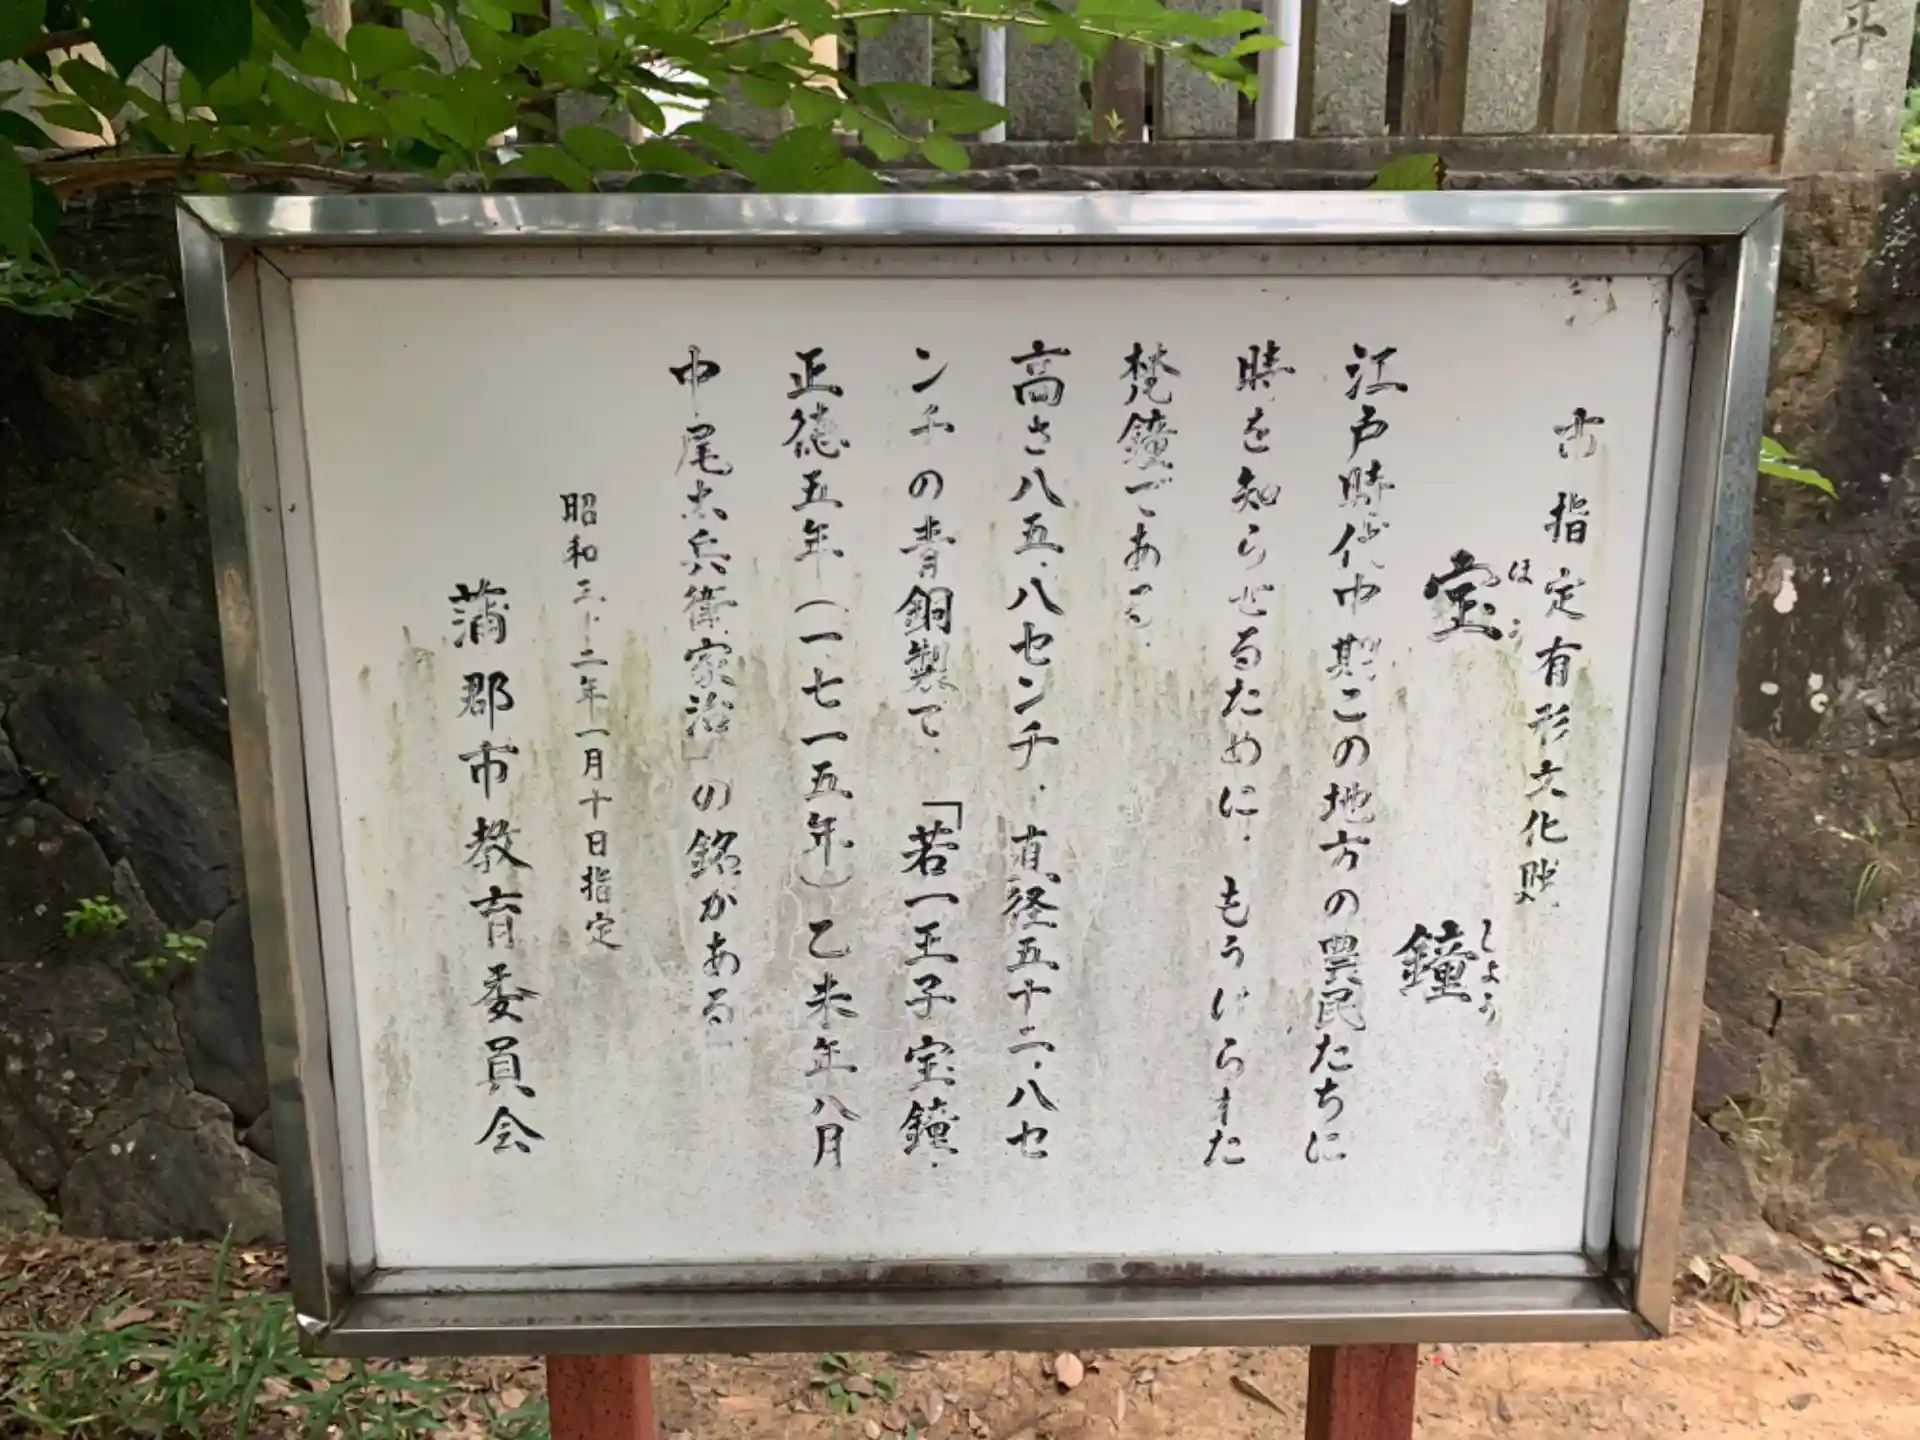 市指定有形文化財
宝鐘
ほう しょう
江戸時代中期この地方の農民たちに
時を知らせるために、もうけられた
梵鐘である。
高さ八五・八センチ、直径五十二・八セ
ンチの青銅製で、「若一王子宝鐘、
正徳五年（一七一五年）乙未年八月
中尾忠兵衛家治」の銘がある
昭和三十二年一月十日指定
蒲郡市教育委員会